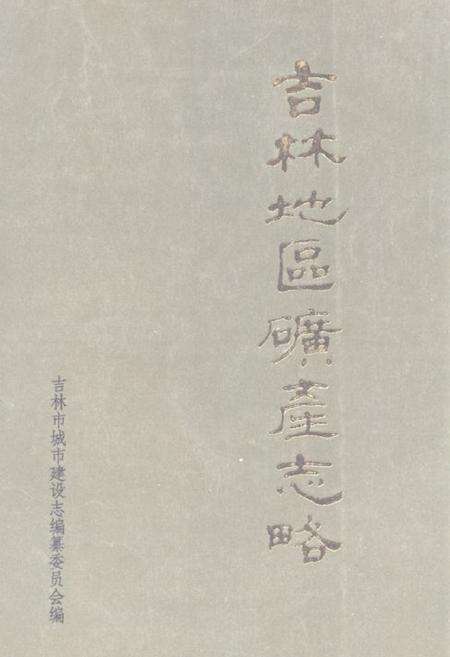 吉林地區礦產志略
吉林市城市建设志编纂委员会编